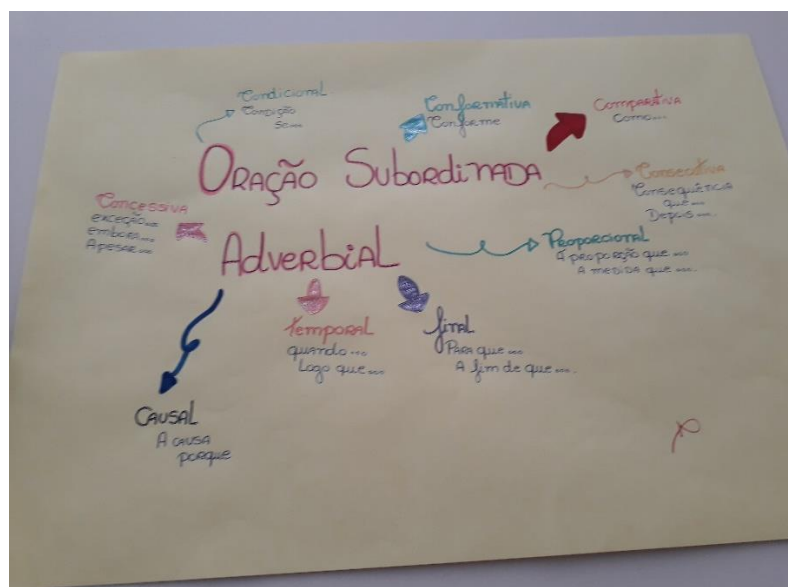 Condicional
Condição
se....
Conformativa
Conforme
Comparativa
como....
Oração Subordinada
Adverbial
Consecutiva
Consequência
que....
Depois....
Concessiva
exceção....
embora....
Apesar....
Proporcional
À proporção que....
A medida que....
Temporal
quando....
Logo que....
final
Para que....
A fim de que....
Causal
A causa
porque